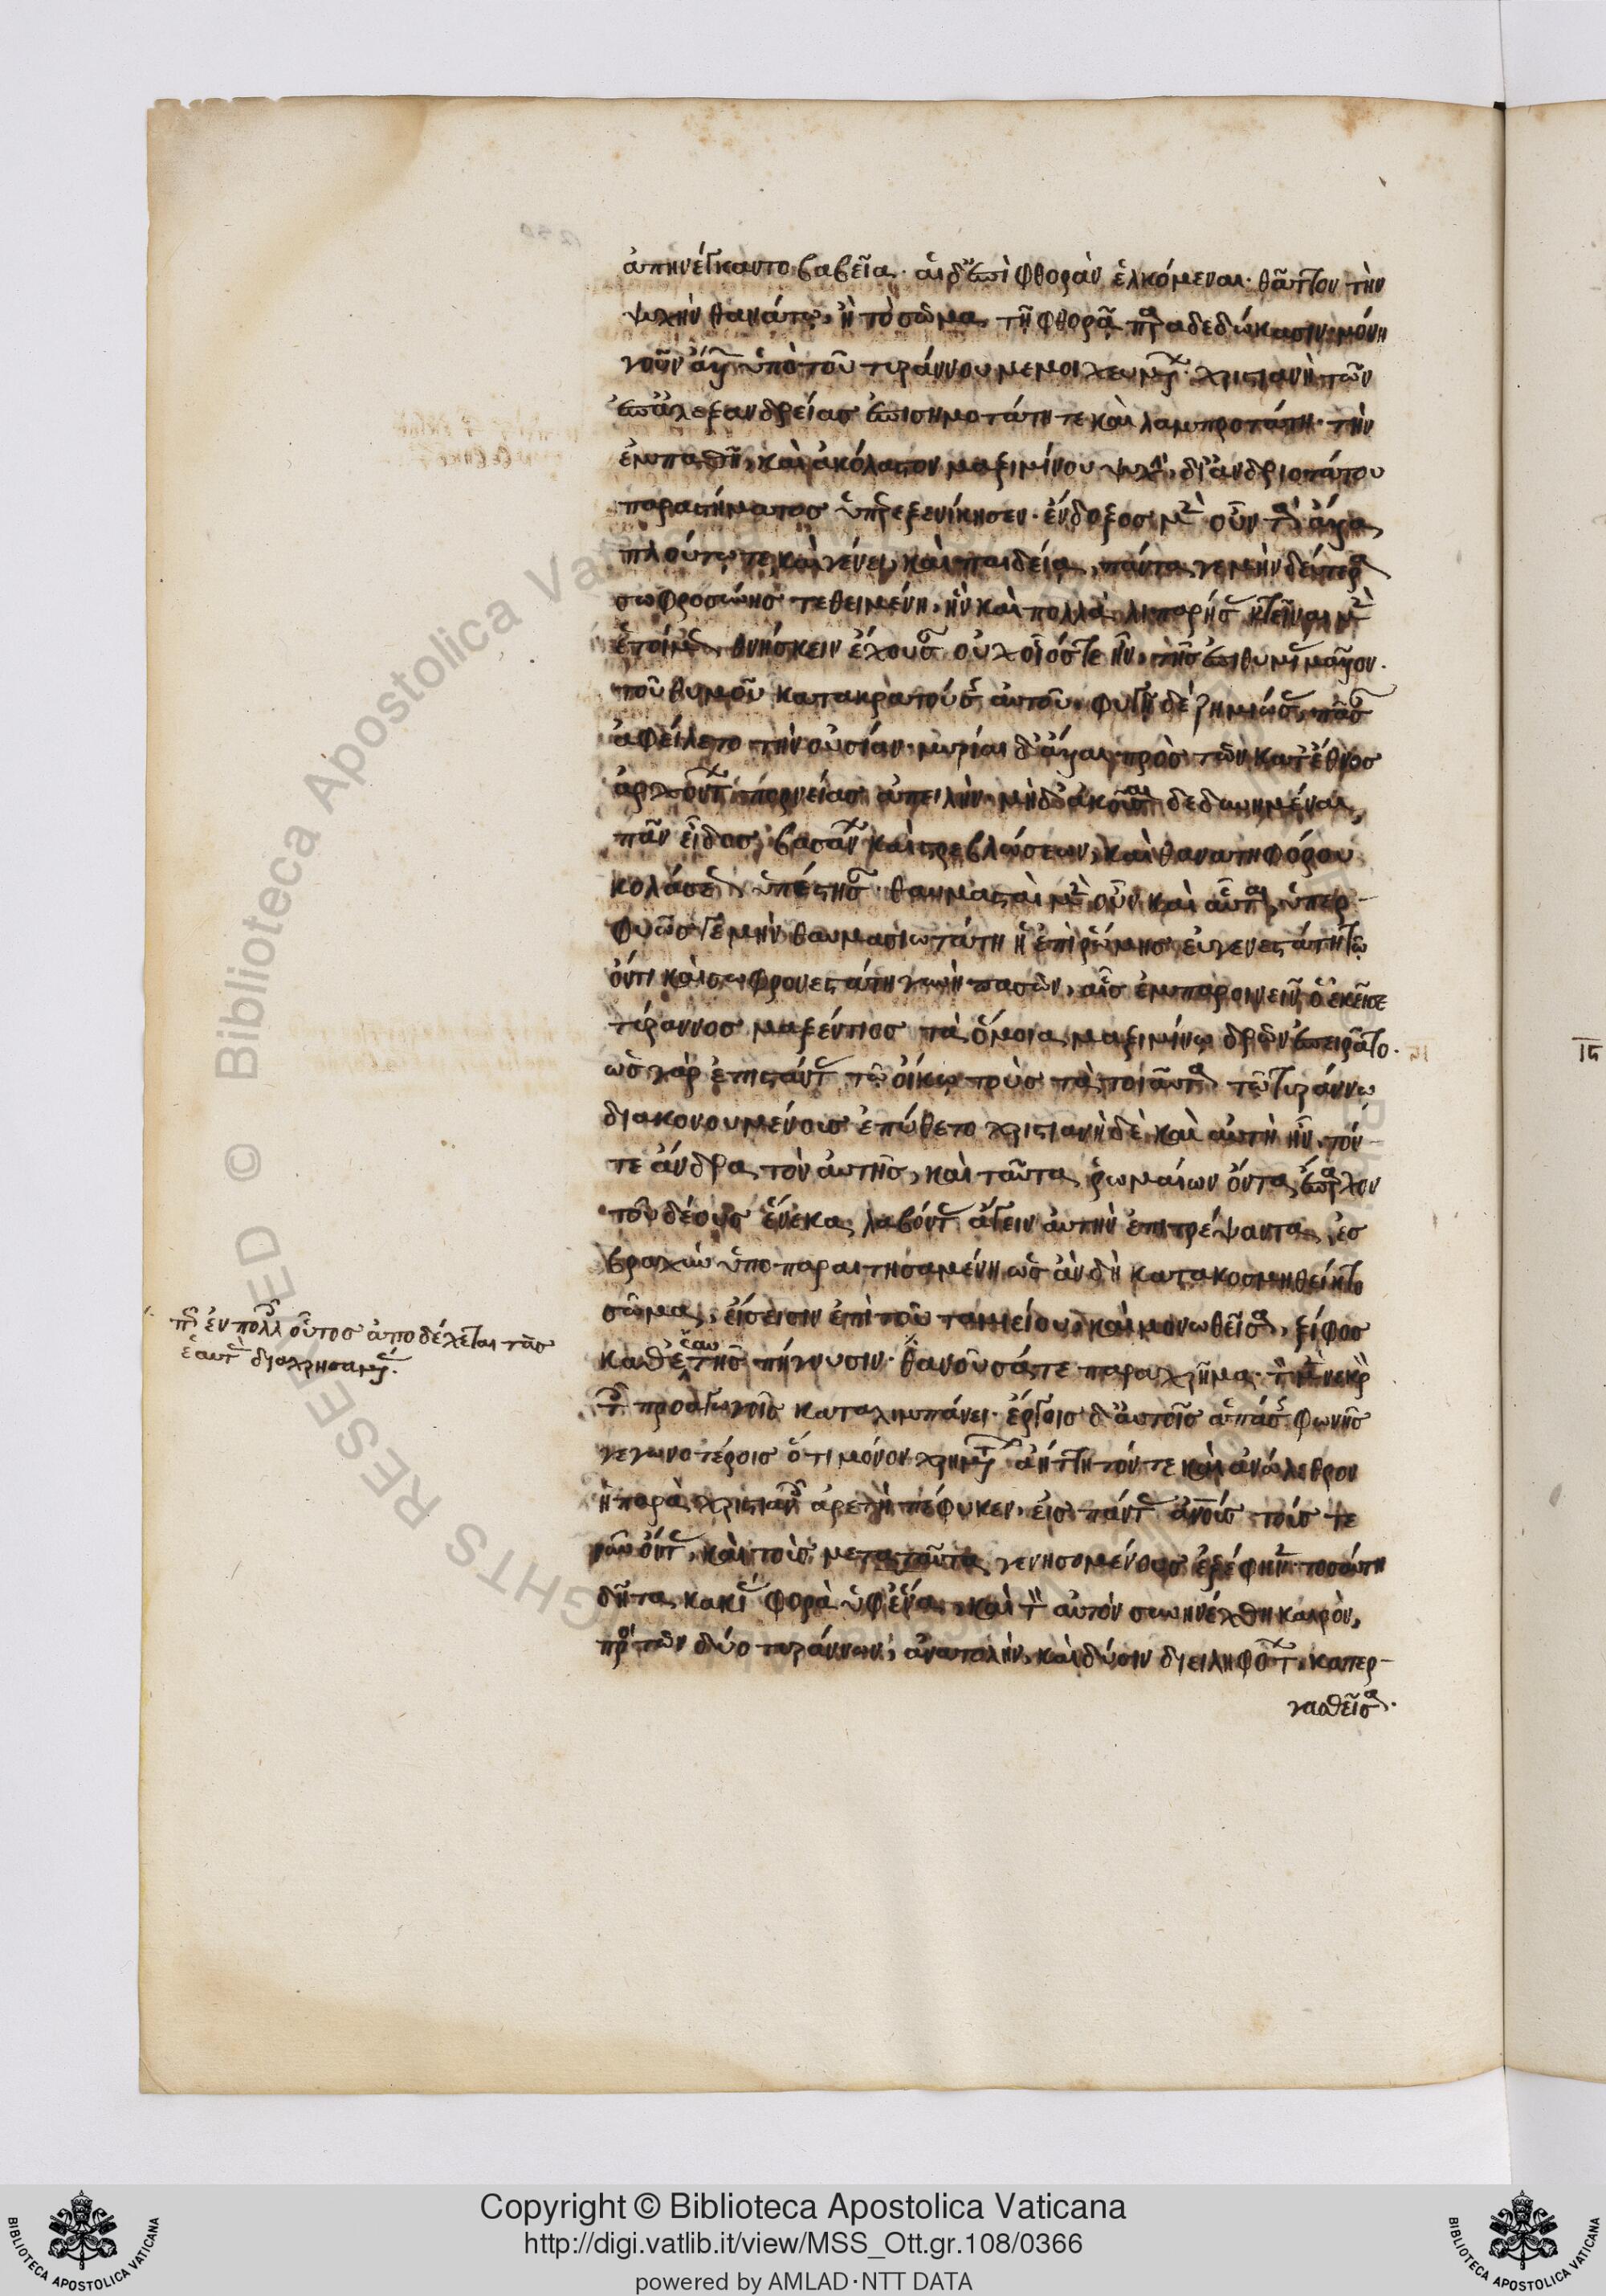 ἀπηνέγκαντο βαβεῖα· αἱ δ' ἐπὶ φθορὰν ἑλκόμεναι· θᾶττον τὴν
ψυχὴν θανάτω, ἢ τὸ σῶμα τῆ φθορᾶ παραδεδώκασιν· μόνη
γοῦν τῶν ὑπὸ τοῦ τυράννου μεμοιχευμένων χριστιανὴ τῶν
ἐπ' ἀλεξανδρείας ἐπισημοτάτη τε καὶ λαμπροτάτη· τὴν
ἐμπαθῆ καὶ ἀκόλαστον μαξιμίνου ψυχὴν, δι' ἀνδριοτάτου
παραστήματος ὑπερεξενίκησεν· ἔνδοξος μὲν οὖν τὰ ἄλλα
πλούτω τε καὶ γένει καὶ παιδεία, πάντα γε μὴν δεύτερα
σωφροσύνης τεθειμένη, ἣν καὶ πολλὰ λιπαρήσας κτεῖναι μὲν
ἑτοίμως θνήσκειν ἔχουσαν οὐχ οἷός τε ἦν, τῆς ἐπιθυμίας μᾶλλον
τοῦ θυμοῦ κατακρατούσης αὐτοῦ· φυγῆ δὲ ζημιώσας, πάσης
ἀφείλετο τὴν οὐσίαν· μυρίαι δ' ἄλλαι πρὸς τῶν κατ' ἔθνος
ἀρχόντων πορνείας ἀπειλὴν μηδ' ἀκοῦσαι δεδυνημέναι,
πᾶν εἶδος βασάνων καὶ στρεβλώσεων, καὶ θανατηφόρου
κολάσεως ὑπέστησαν· θαυμασταὶ μὲν οὖν καὶ αὗται, ὑπερ-
φυῶς γε μὴν θαυμασιωτάτη ἡ ἐπὶ ῥώμης εὐγενεστάτη τῶ
ὄντι καὶ σωφρονεστάτη γυνὴ πασῶν, αἷς ἐμπαροινεῖν ὁ ἐκεῖσε
τύραννος μαξέντιος τὰ ὅμοια μαξιμίνω δρῶν ἐπειρᾶτο·
ὡς γὰρ ἐπιστάντας τῶ οἴκω τοὺς τὰ τοιαῦτα τῶ τυράννω
διακονουμένους ἐπύθετο χριστιανὴ δὲ καὶ αὐτὴ ἦν, τόν
τε ἄνδρα τὸν αὐτῆς, καὶ ταῦτα ῥωμαίων ὄντα ἔπαρχον
τοῦ δέους ἕνεκα λαβόντας ἄγειν αὐτὴν ἐπιτρέψαντα, ἐς
βραχὺ ὑποπαραιτησαμένη ὡς ἂν δὴ κατακοσμηθείη τὸ
σῶμα, εἴσεισιν ἐπὶ τοῦ ταμιείου, καὶ μονωθεῖσα, ξίφος
καθ' ἑαυτῆς πήγνυσιν· θανοῦσά τε παραχρῆμα· τὸν μὲν νεκρὸν
τοῖς προαγωγοῖς καταλιμπάνει· ἔργοις δ' αὐτοῖς ἁπάσης φωνῆς
γεγωνοτέροις ὅτι μόνον χρημάτων ἀήττητόν τε καὶ ἀνώλεθρον
ἡ παρὰ χριστιανοῖς ἀρετὴ πέφυκεν, εἰς πάντας ἀνους τούς τε
νῦν ὄντας, καὶ τοὺς μετὰ ταῦτα γενησομένους ἐξέφηνεν· τοσαύτη
δῆτα κακίας φορὰ ὑφ' ἕνα καὶ τὸν αὐτὸν συνηνέχθη καιρὸν,
πρὸς τῶν δύο τυράννων, ἀνατολὴν, καὶ δύσιν διειληφότων, κατερ-
γασθεῖσα·
πῶς ἐν πολλοῖς οὗτος ἀποδέχεται τὰς
ἑαυτὰς διαχρησαμένας·